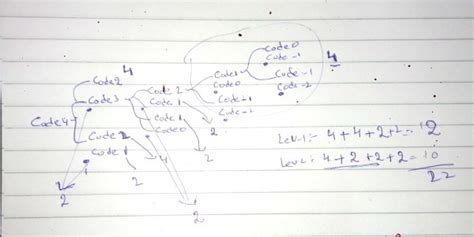 Code 0
Code -1
4
Code 1
Code 0
Code -1
Code -2
Code 2
4
Code 3
Code 2
Code 1
Code 1
Code 0
Code 4
Code 2
Code 1
4
2
2
2
2
2
Lev-1:- 4+4+2+2=12
Lev2: 4+2+2+2=10
22